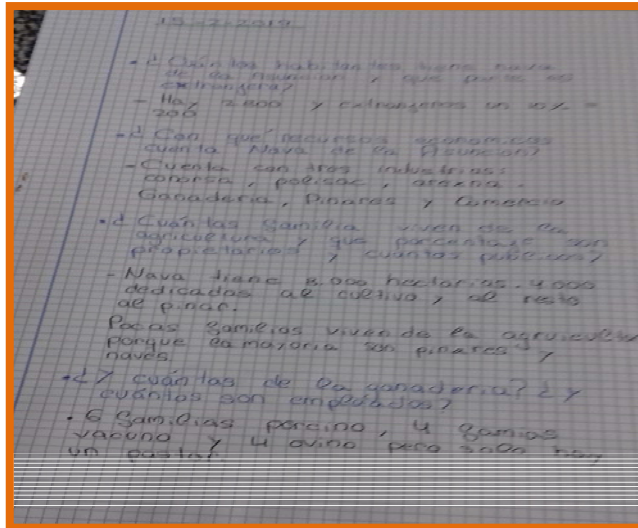 15-2-2019
- ¿Cuántos habitantes tiene Nava
de la Asunción y que parte es
extranjera?
- Hay 2800 y extranjeros un 10% =
200
- ¿Con qué recursos económicos
cuenta Nava de la Asunción?
- Cuenta con tres industrias:
conansa, polisac, arexna.
Ganadería, Pinares y Comercio
• ¿Cuántas familia viven de la
agricultura y que porcentaje son
propietarios y cuántos públicos?
- Nava tiene 8.000 hectarias. 4.000
dedicadas al cultivo y el resto
al pinar.
Pocas familias viven de la
porque la mayoria son pinares y
naves.
• ¿Y cuántas de la ganaderia? ¿Y
cuántos son empleados?
• 6 familias porcino, 4
vacuno y 4 ovino pero solo hay
un pastor.